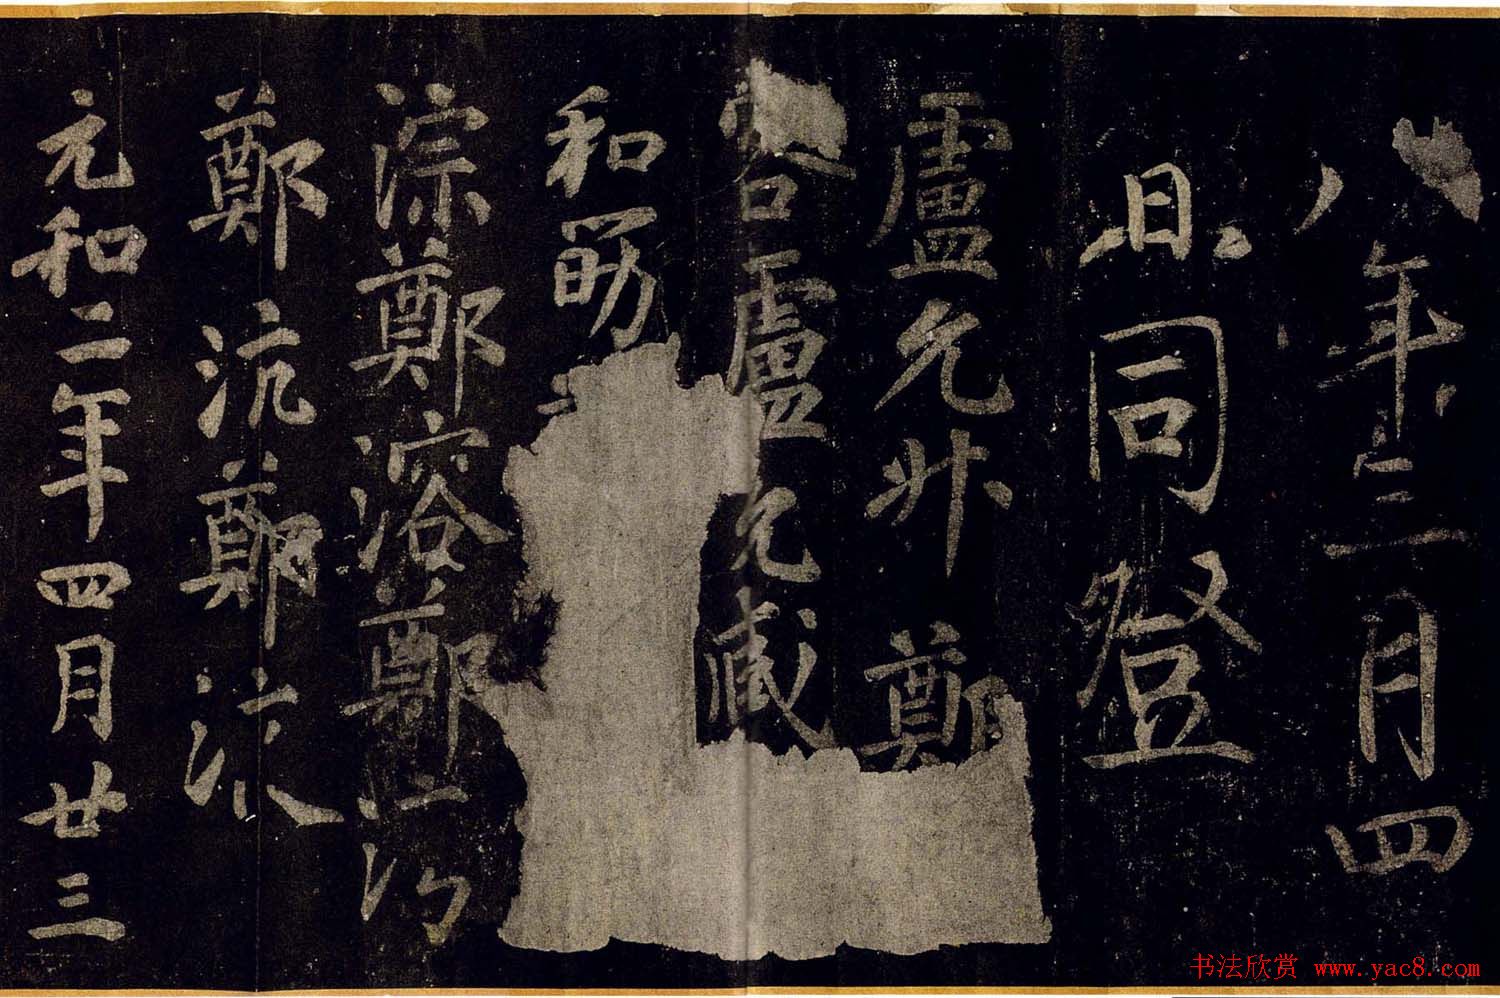 八年三月四
日同登
盧允 鄭
盧元威
和
淙鄭溶鄭
鄭沆鄭
元和二年四月廿三
书法欣赏 www.yac8.com